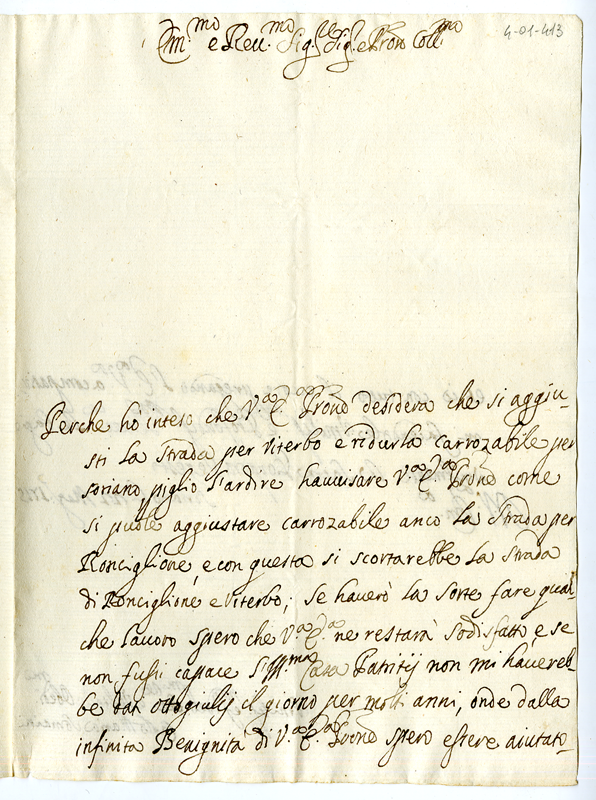 4-01-413
Em.mo e Reu.mo Sig.re Sig.re e Pron Coll.mo
Perche hò inteso che V.a E.a Prone desidera che si aggiu-
sti la strada per viterbo e ridurla carrozabile per
soriano, piglio l'ardire hauuisare V.a E.a Prone come
si puole aggiustare carrozabile anco la strada per
Ronciglione, e con questa si scortarebbe la strada
di Ronciglione e Viterbo; se hauerò la sorte fare qual
che lauoro spero che V.a E.a ne restarà sodisfatto, e se
non fussi capace l'Ill.ma Casa Patritij non mi hauereb-
be dat otto giulij il giorno per molti anni, onde dalla
infinita Benignità di V.a E.a Prone spero essere aiutato